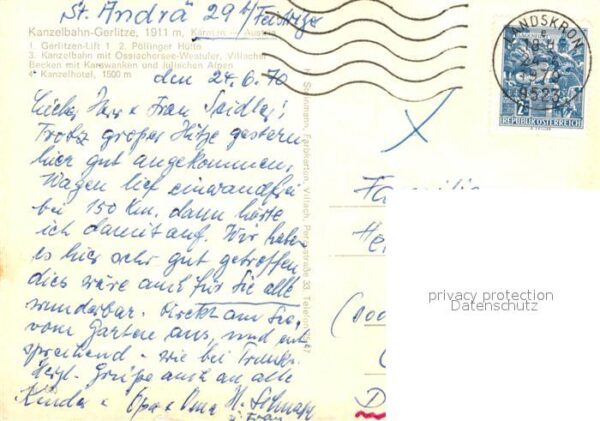 St. Andrä 29 b/Feistritzer
Kanzelbahn-Gerlitze, 1911 m, Kärnten — Austria
1. Gerlitzen-Lift 1 2. Pöllinger Hütte
3. Kanzelbahn mit Ossiachersee-Westufer, Villacher
Becken mit Karawanken und Julischen Alpen
4. Kanzelhotel, 1500 m
den 24.6.70
Liebes Herr & Frau Seidler!
Trotz großer Hitze gestern
hier gut angekommen,
Wagen lief einwandfrei
bei 150 Km. dann hörte
ich damit auf. Wir haben
es hier sehr gut getroffen
dies wäre auch für Sie alle
wunderbar. Direkt am See,
vom Garten aus, und
sprechend - wie bei
Herzl. Grüße auch an alle
Kinder & Opa & Oma H. Schnapp
u. Frau
Farbkarten, Villach, 33, Telefon
LANDSKRON
1970
9523
REPUBLIK ÖSTERREICH
Familie
He
(
D
privacy protection
Datenschutz